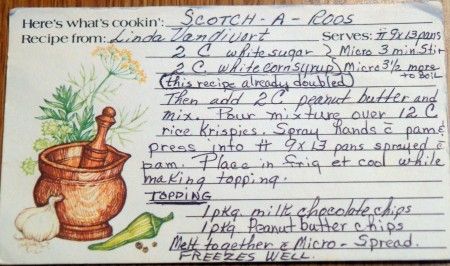 Here's what's cookin': SCOTCH-A-ROOS
Recipe from: Linda Vandivort Serves: # 9x13 pans
2 C. white sugar } Micro 3 min Stir
2 C. white corn syrup } Micro 3½ more to boil
(this recipe already doubled)
Then add 2 C peanut butter and
mix. Pour mixture over 12 C
rice Krispies. Spray hands c pam &
press into # 9x13 pans sprayed c
pam. Place in frig et cool while
making topping.
TOPPING
1 pkg. milk chocolate chips
1 pkg. Peanut butter chips
Melt together & Micro - Spread.
FREEZES WELL.